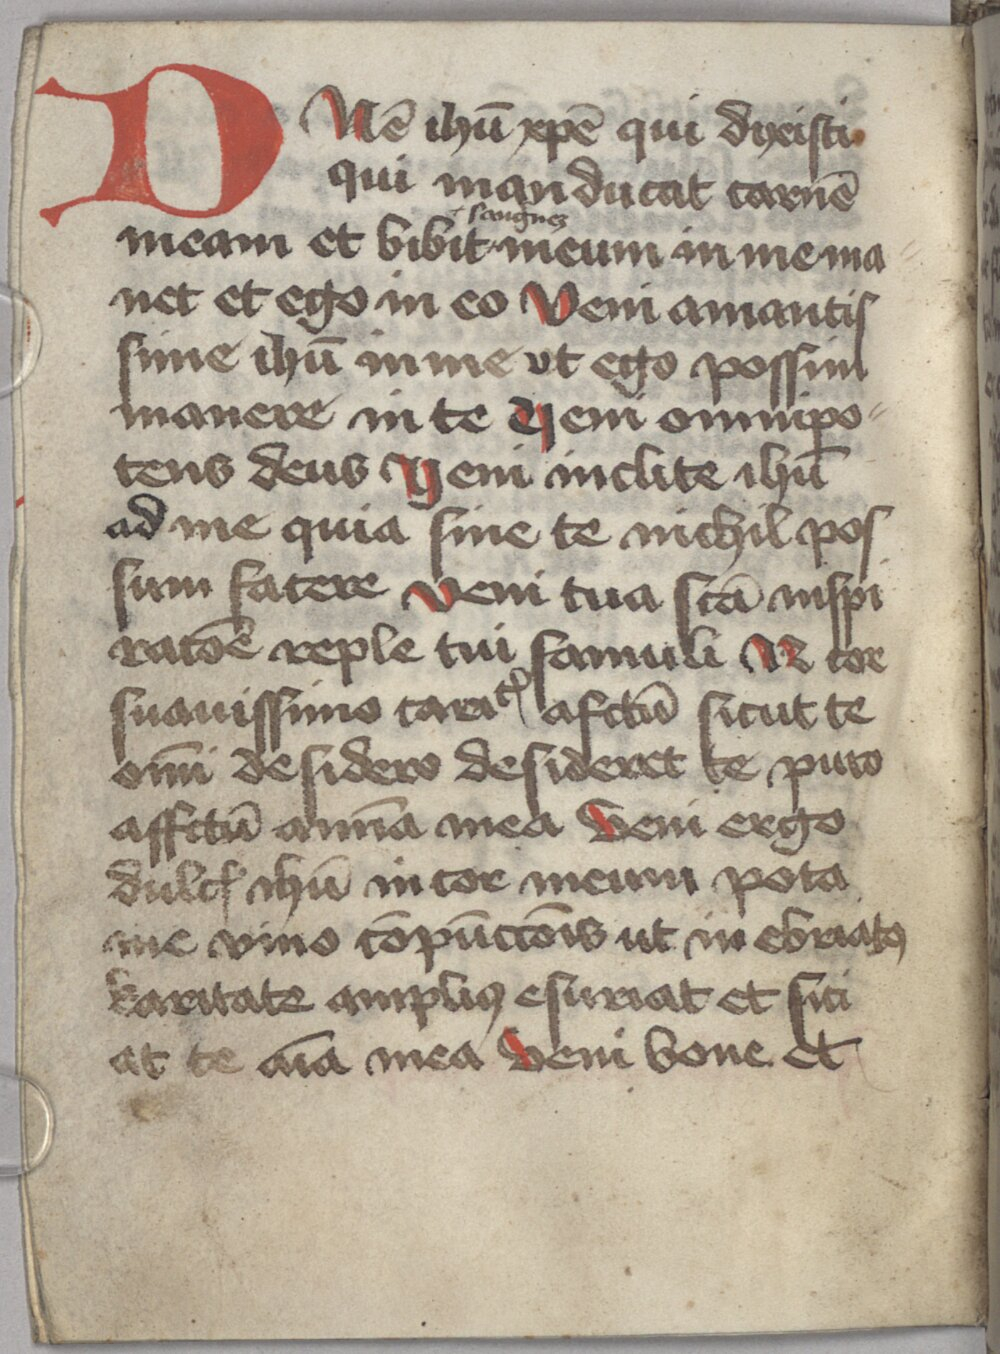 DNē ihū xpē qui dyxisti
qui manducat carnē
sangnez
meam et bibit meum in me ma
net et ego in eo Veni amantis
sime ihū in me ut ego possim
manere in te Veni omnipo-
tens deus Veni inclite ihū
ad me quia sine te nichil pos
sum facere veni tua scā inspi
ratōe reple tui famuli cor
suauissimo carit afctū sicut te
omī desidero desideret te puro
affctū anīa mea Veni ergo
dulcis ihū in cor meum pota
me vino cōpūctōis ut in ebriatꝰ
karitate ampliꝰ esuriat et siti
at te aīa mea Veni bone et